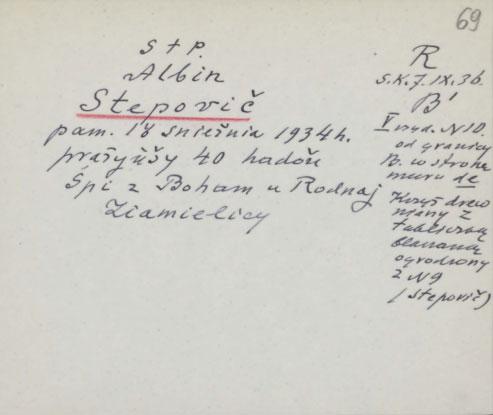 69
S + P.
Albin
Stepovič
pam. 18 śniežnia 1934h.
pražyŭšy 40 hadoŭ
Śpi z Boham u Rodnaj
Ziamielicy
R
S.K.7.IX.36.
B'
V rząd. N10.
od granicy
B. w stronę
muru de
Krzyż drew
niany z
tabliczką
blaszaną
ogrodzony
z N9
(Stepovič)